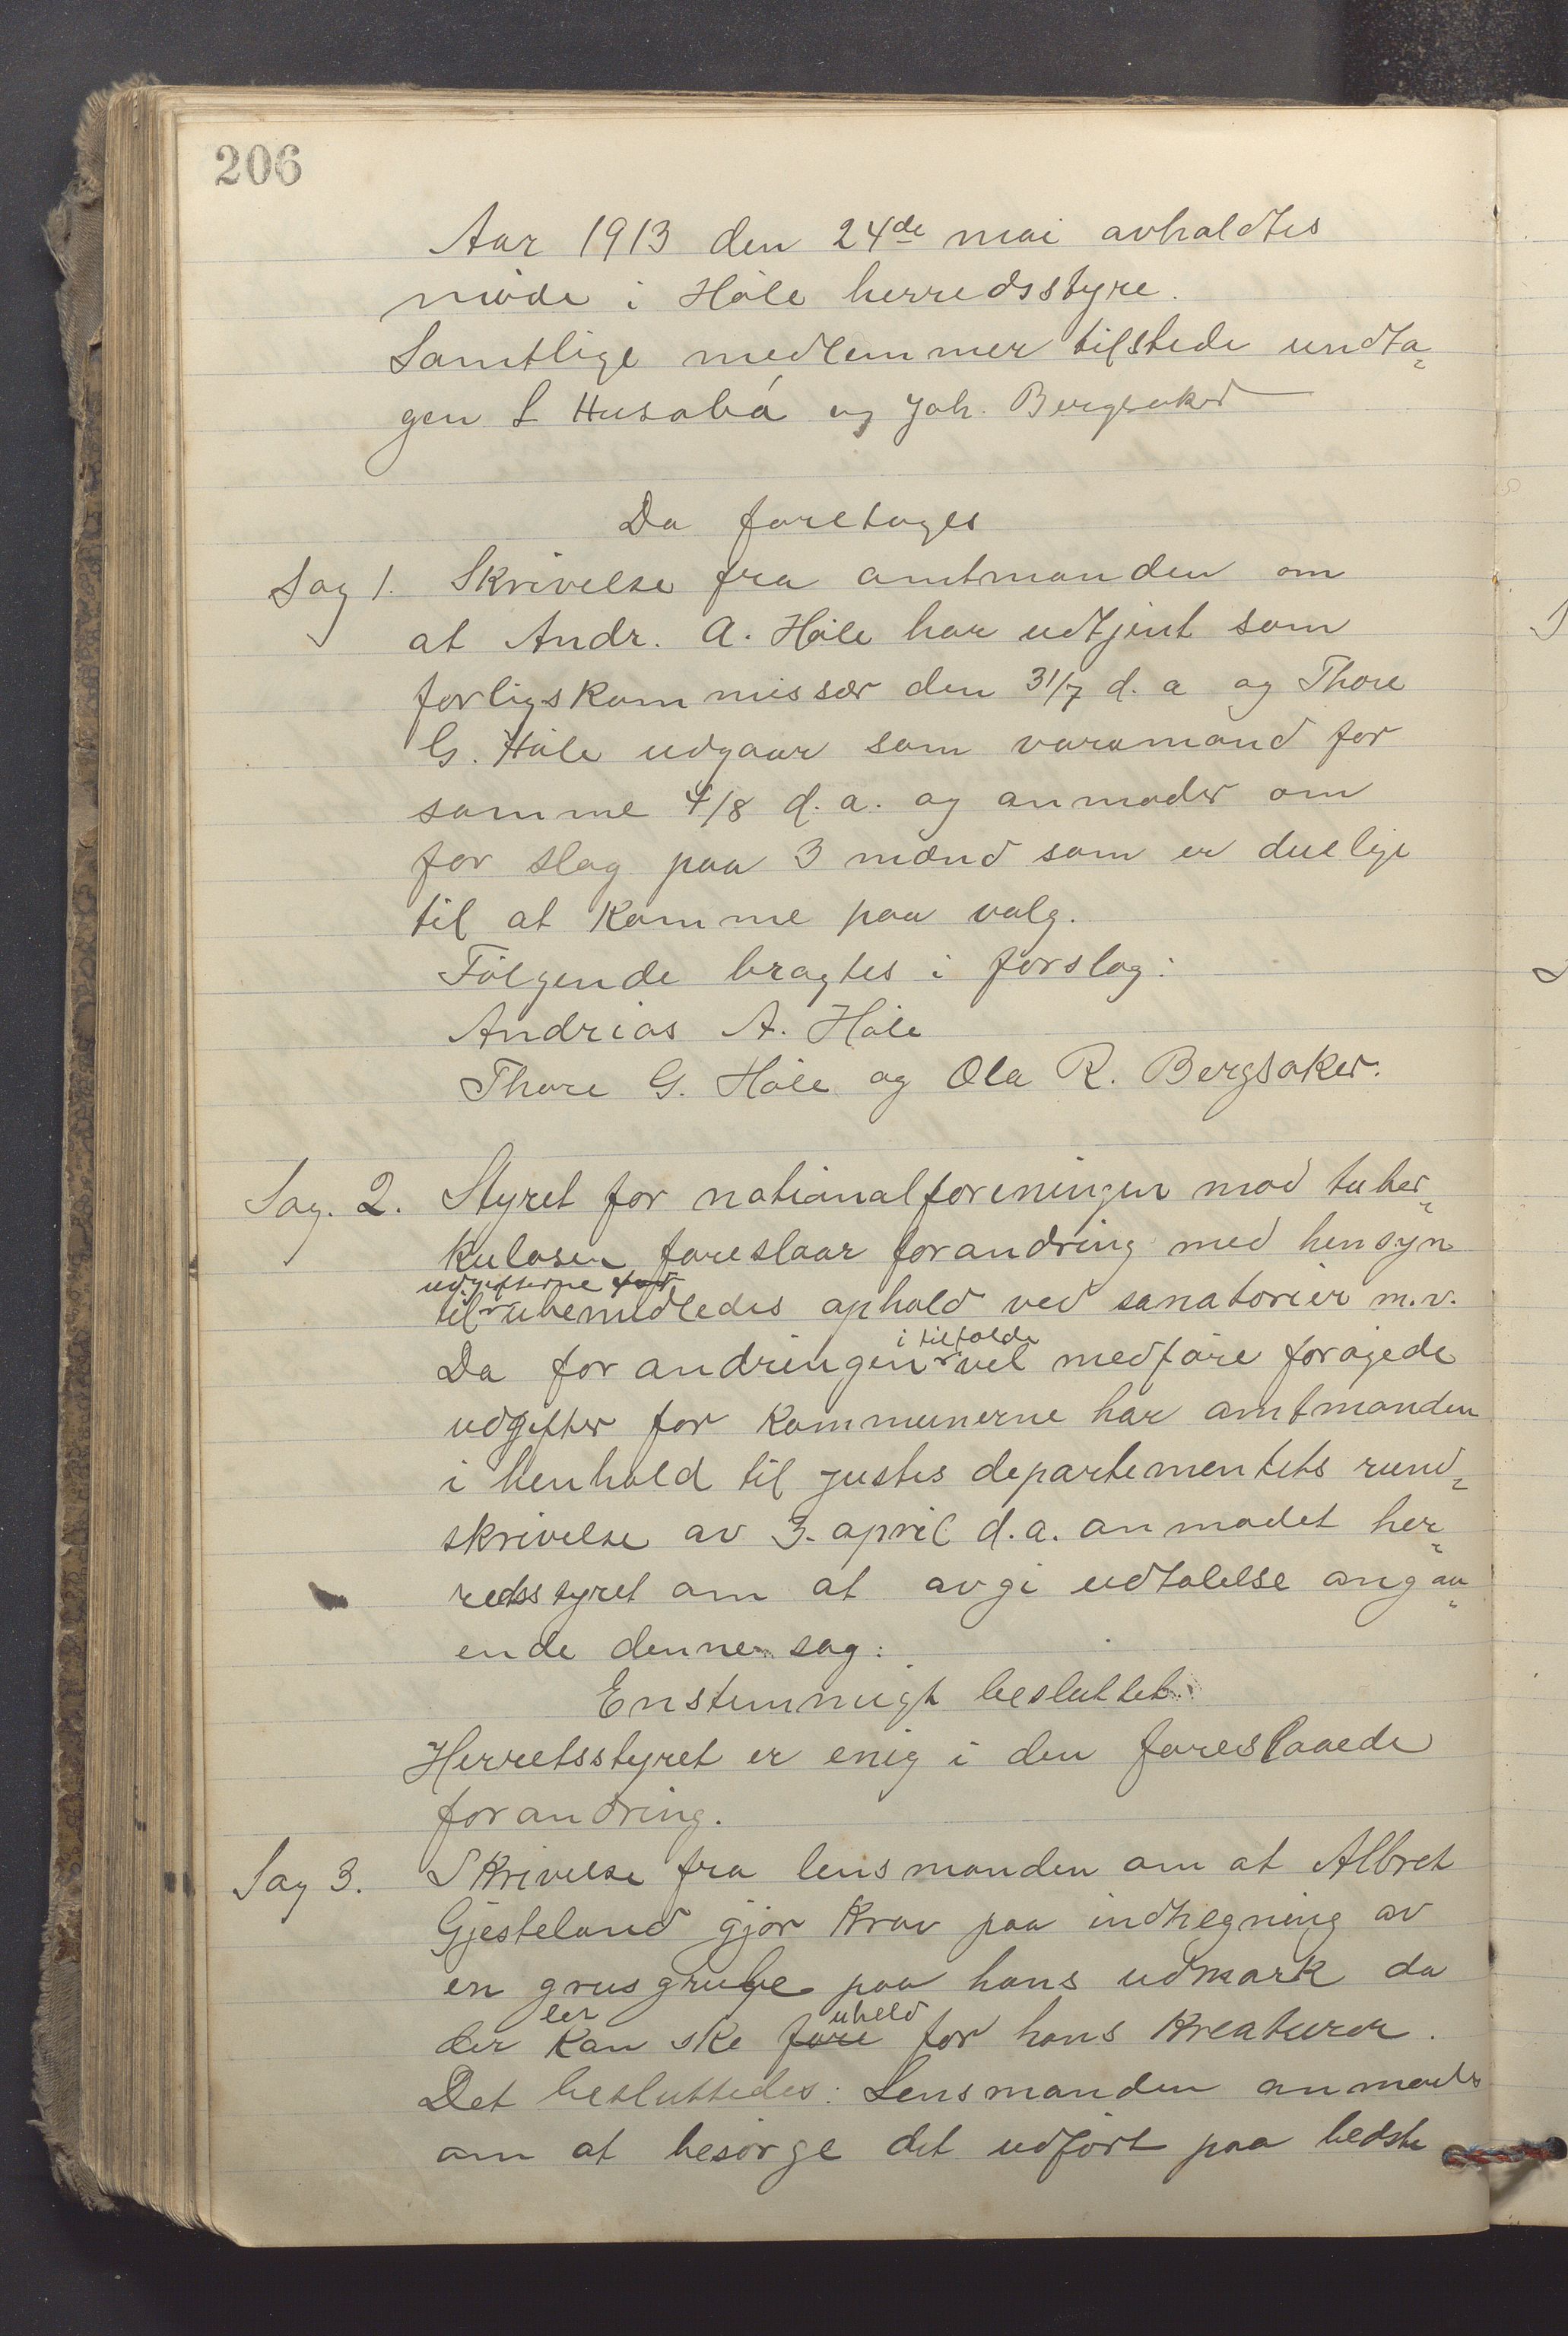 206
Aar 1913 den 24de mai avholdtes
møde i Høle herredsstyre.
Samtlige medlemmer tilstede undta-
gen S Husabø og Joh. Bergsaker
Da foretoges
Sag 1. Skrivelse fra amtmanden om
at Andr. A. Høle har udtjent som
forligskommissær den 31/7 d. a og Thore
G. Høle udgaar som varamand for
samme 4/8 d. a. og anmoder om
forslag paa 3 mænd som er duelige
til at komme paa valg.
Følgende bragtes i forslag:
Andrias A. Høle
Thore G. Høle og Ola R. Bergsaker.
Sag. 2. Styret for nationalforeningen mod tuber-
kulosen foreslaar forandring med hensyn
udgifterne for
til ubemidledes ophold ved sanatorier m.v.
i tilfælde
Da forandringen vil medføre forøgede
udgifter for kommunerne har amtmanden
i henhold til justisdepartementets rund-
skrivelse av 3. april d.a. anmodet her-
redsstyret om at avgi udtalelse angaa-
ende denne sag:
Enstemmigt besluttet
Herretsstyret er enig i den foreslaaede
forandring.
Sag 3. Skrivelse fra lensmanden om at Albret
Gjesteland gjør krav paa indhegning av
en grusgrube paa hans udmark da
der kan ske fare uheld for hans kreaturer.
Det besluttedes: Lensmanden anmodes
om at besørge det udført paa bedste